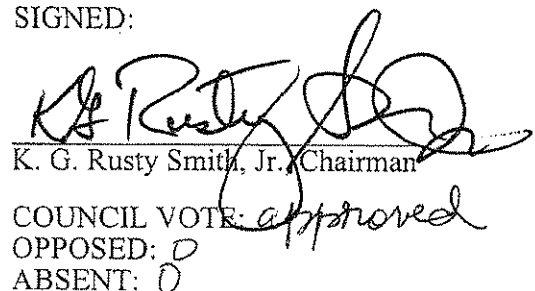 SIGNED:
KG Rusty S
K. G. Rusty Smith, Jr., Chairman
COUNCIL VOTE: approved
OPPOSED: 0
ABSENT: 0